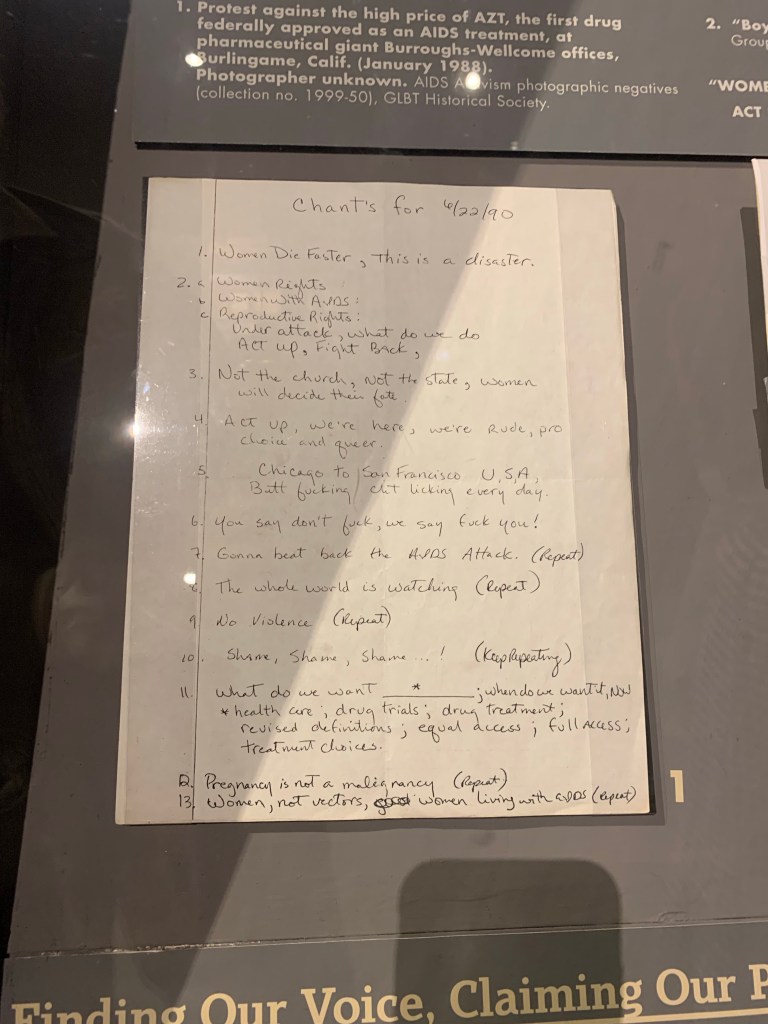 1. Protest against the high price of AZT, the first drug
federally approved as an AIDS treatment, at
pharmaceutical giant Burroughs-Wellcome offices,
Burlingame, Calif. (January 1988).
Photographer unknown. AIDS Activism photographic negatives
(collection no. 1999-50), GLBT Historical Society.
2. "Boy
Group
"WOME
ACT
Chant's for 6/22/90
1. Women Die Faster, This is a disaster.
2. a Women Rights
b Women With AIDS:
c Reproductive Rights:
Under attack, what do we do
Act up, Fight Back,
3. Not the church, not the state, women
will decide their fate.
4. Act up, we're here, we're Rude, pro
choice and queer.
5. Chicago to San Francisco U.S.A,
Butt fucking/clit licking every day.
6. You say don't fuck, we say fuck you!
7. Gonna beat back the AIDS Attack. (Repeat)
8. The whole world is watching (Repeat)
9 No Violence (Repeat)
10. Shame, Shame, Shame...! (Keep Repeating)
11. What do we want ___*___; when do we want it, Now
* health care; drug trials; drug treatment;
revised definitions; equal access; full access;
treatment choices.
12. Pregnancy is not a malignancy (Repeat)
13. Women, not vectors, women living with AIDS (Repeat)
1
Finding Our Voice, Claiming Our P